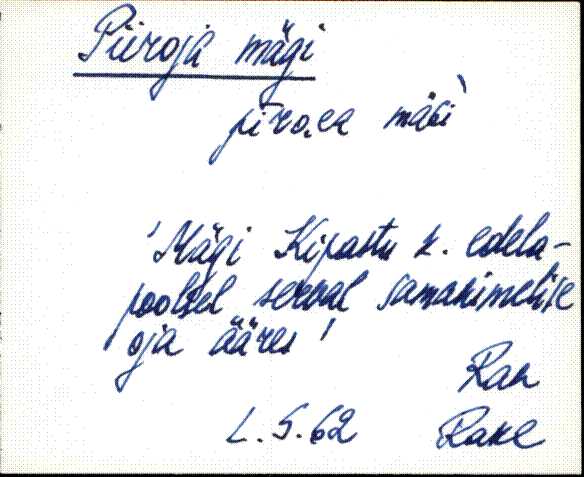 Piiroja mägi
pīro.ea mäGi`
'Mägi Kipastu k. edela-
poolsel serval samanimelise
oja ääres'
Ran
L. S. 62 Rane